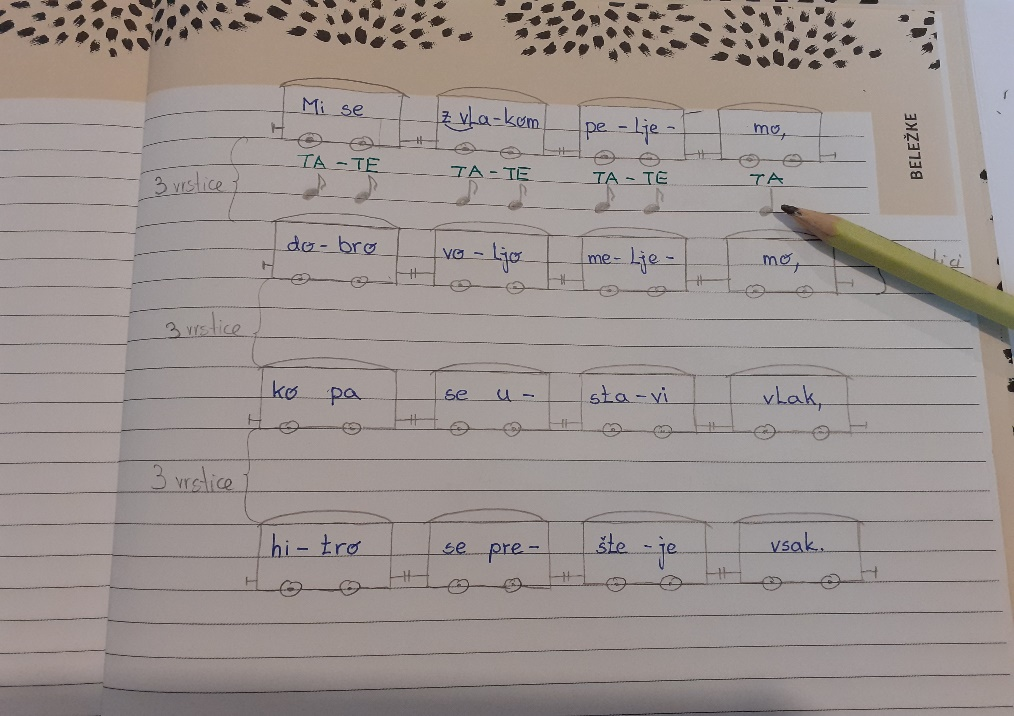 BELEŽKE
Mi se z vla-kom pe-lje- mo,
TA-TE TA-TE TA-TE TA
3 vrstice
do-bro vo-ljo me-lje- mo,
3 vrstice
ko pa se u- sta-vi vlak,
3 vrstice
hi-tro se pre- šte-je vsak.